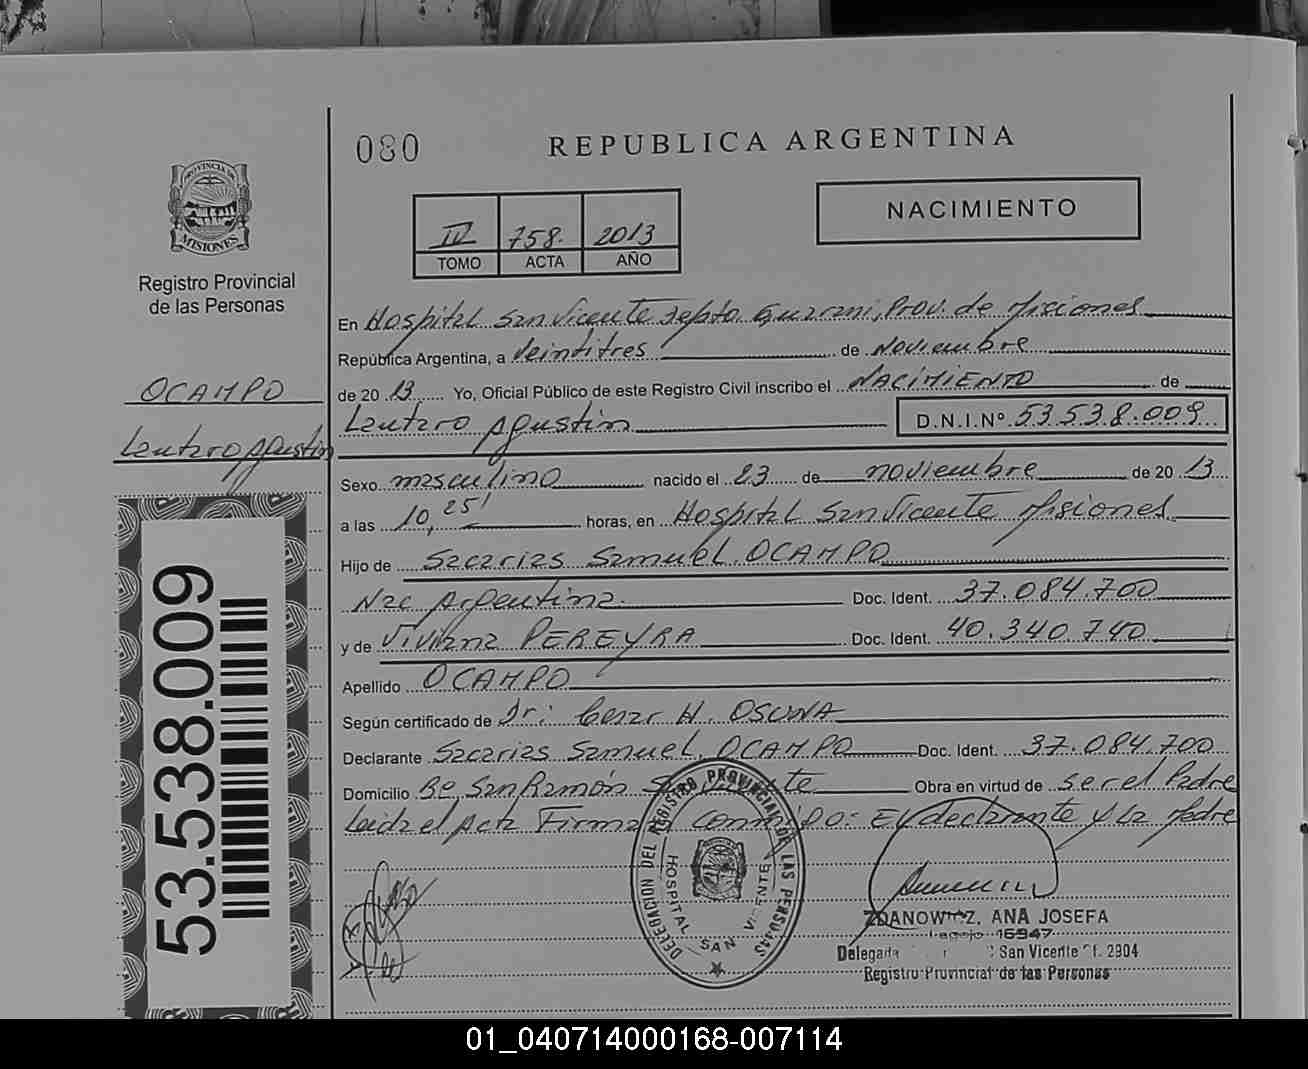 080
REPUBLICA ARGENTINA
PROVINCIA DE
MISIONES
Registro Provincial
de las Personas
IV 758. 2013
TOMO ACTA AÑO
NACIMIENTO
OCAMPO
Lautaro Agustin
53.538.009
En Hospital San Vicente Depto Guarani, Prov. de Misiones
República Argentina, a Veintitres de Noviembre
de 2013 Yo, Oficial Público de este Registro Civil inscribo el NACIMIENTO de
Lautaro Agustin D.N.I.Nº 53.538.009
Sexo masculino nacido el 23 de noviembre de 2013
a las 10,25' horas, en Hospital San Vicente Misiones
Hijo de Sacarias Samuel OCAMPO
Nac Argentina. Doc. Ident. 37.084.700
y de Viviana PEREYRA Doc. Ident. 40.340.740
Apellido OCAMPO
Según certificado de Dr: Cesar H. OSUNA
Declarante Sacarias Samuel OCAMPO Doc. Ident. 37.084.700
Domicilio Bº San Ramón Obra en virtud de ser el Padre
Leida el Acta Firman Conmigo: El declarante y La Madre
DELEGACION DEL REGISTRO PROVINCIAL DE LAS PERSONAS
HOSPITAL SAN VICENTE
ZDANOWICZ, ANA JOSEFA
Legajo 16947
Delegada San Vicente Of. 2904
Registro Provincial de las Personas
01_040714000168-007114